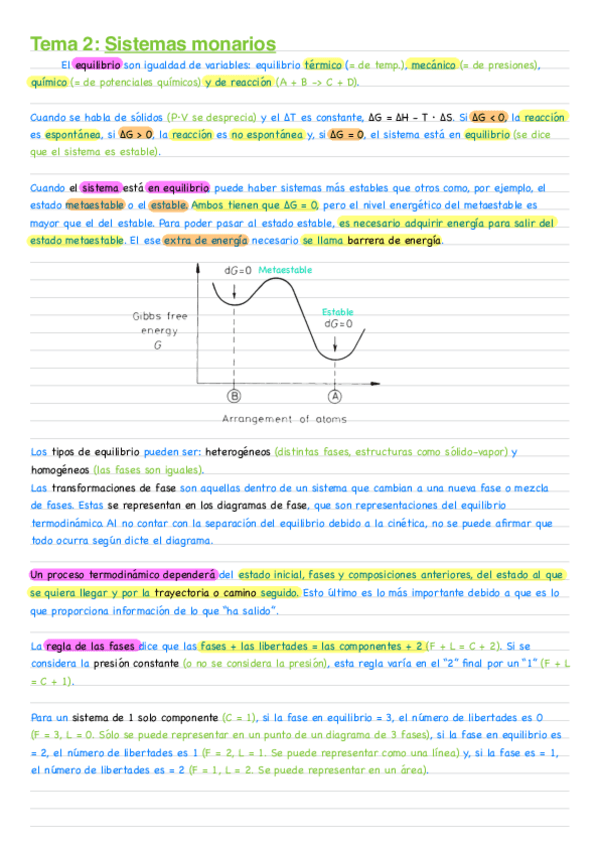 Tema 2: Sistemas monarios
El equilibrio son igualdad de variables: equilibrio térmico (= de temp.), mecánico (= de presiones),
químico (= de potenciales químicos) y de reacción (A + B -> C + D).
Cuando se habla de sólidos (P·V se desprecia) y el ΔT es constante, ΔG = ΔH - T · ΔS. Si ΔG < 0, la reacción
es espontánea, si ΔG > 0, la reacción es no espontánea y, si ΔG = 0, el sistema está en equilibrio (se dice
que el sistema es estable).
Cuando el sistema está en equilibrio puede haber sistemas más estables que otros como, por ejemplo, el
estado metaestable o el estable. Ambos tienen que ΔG = 0, pero el nivel energético del metaestable es
mayor que el del estable. Para poder pasar al estado estable, es necesario adquirir energía para salir del
estado metaestable. El ese extra de energía necesario se llama barrera de energía.
dG=0 Metaestable
Estable
dG=0
Gibbs free
energy
G
B A
Arrangement of atoms
Los tipos de equilibrio pueden ser: heterogéneos (distintas fases, estructuras como sólido-vapor) y
homogéneos (las fases son iguales).
Las transformaciones de fase son aquellas dentro de un sistema que cambian a una nueva fase o mezcla
de fases. Estas se representan en los diagramas de fase, que son representaciones del equilibrio
termodinámico. Al no contar con la separación del equilibrio debido a la cinética, no se puede afirmar que
todo ocurra según dicte el diagrama.
Un proceso termodinámico dependerá del estado inicial, fases y composiciones anteriores, del estado al que
se quiera llegar y por la trayectoria o camino seguido. Esto último es lo más importante debido a que es lo
que proporciona información de lo que "ha salido".
La regla de las fases dice que las fases + las libertades = las componentes + 2 (F + L = C + 2). Si se
considera la presión constante (o no se considera la presión), esta regla varía en el "2" final por un "1" (F + L
= C + 1).
Para un sistema de 1 solo componente (C = 1), si la fase en equilibrio = 3, el número de libertades es 0
(F = 3, L = 0. Sólo se puede representar en un punto de un diagrama de 3 fases), si la fase en equilibrio es
= 2, el número de libertades es 1 (F = 2, L = 1. Se puede representar como una línea) y, si la fase es = 1,
el número de libertades es = 2 (F = 1, L = 2. Se puede representar en un área).